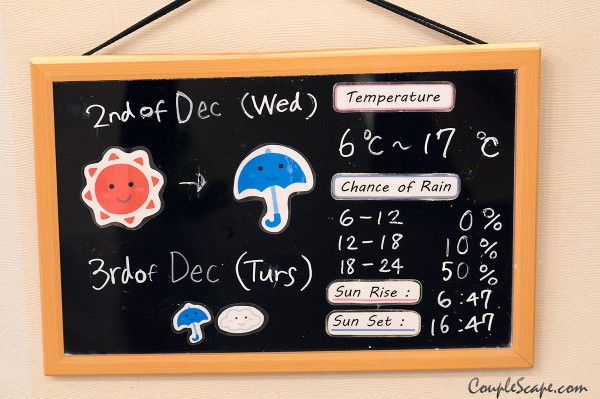 2nd of Dec (Wed)
3rd of Dec (Turs)
Temperature
6°C ~ 17 °C
Chance of Rain
6-12 0%
12-18 10%
18-24 50%
Sun Rise : 6:47
Sun Set : 16:47
CoupleScape.com